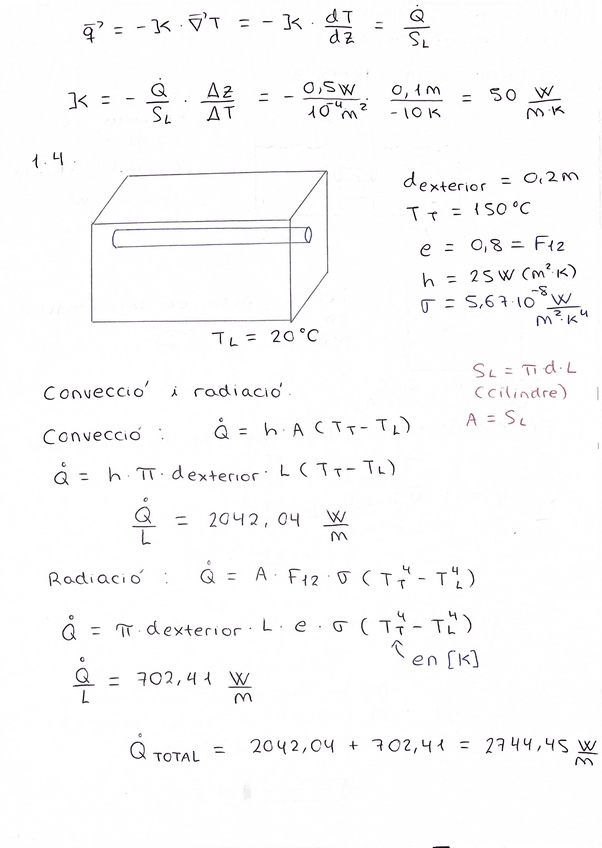 q⃗ = -K · ∇⃗T = -K · dT/dz = Q̇/S_L
K = - Q̇/S_L · Δz/ΔT = - 0,5W/10⁻⁴m² · 0,1m/-10K = 50 W/m·K
1.4.
d exterior = 0,2m
T_T = 150°C
e = 0,8 = F12
h = 25W (m²·K)
σ = 5,67·10⁻⁸ W/m²·K⁴
T_L = 20°C
S_L = π·d·L
(cilindre)
A = S_L
Convecció i radiació.
Convecció : Q̇ = h·A (T_T - T_L)
Q̇ = h·π·dexterior·L (T_T - T_L)
Q̇/L = 2042,04 W/m
Radiació : Q̇ = A · F12 · σ (T_T⁴ - T_L⁴)
Q̇ = π·dexterior·L·e·σ (T_T⁴ - T_L⁴)
↑ en [K]
Q̇/L = 702,41 W/m
Q̇ TOTAL = 2042,04 + 702,41 = 2744,45 W/m